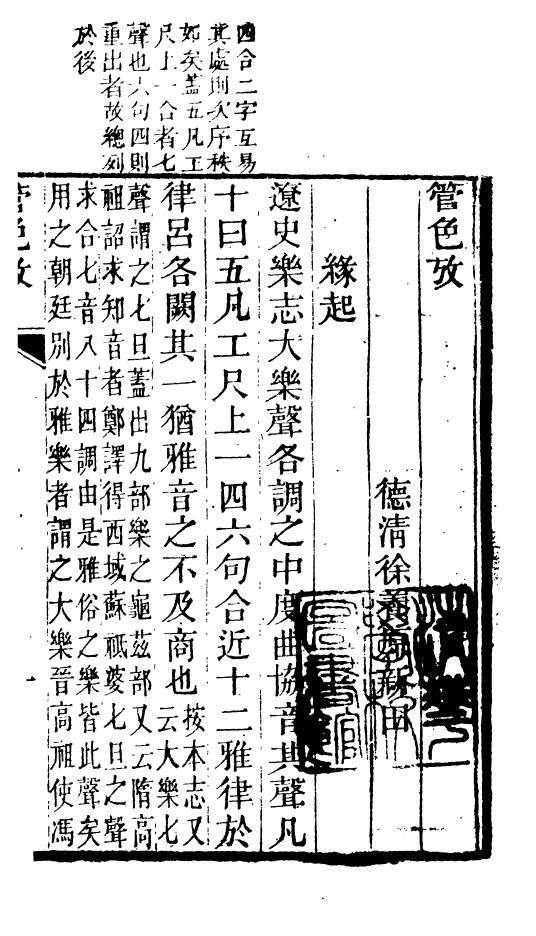 四合二字互易
其處則次序秩
如矣蓋五凡工
尺上一合者七
聲也六句四則
重出者故總列
於後
管色攷
德清徐養原新田
緣起
遼史樂志大樂聲各調之中度曲協音其聲凡
十曰五凡工尺上一四六句合近十二雅律於
律呂各闕其一猶雅音之不及商也
按本志又
云大樂七
聲謂之七旦蓋出九部樂之龜茲部又云隋高
祖詔求知音者鄭譯得西域蘇祇婆七旦之聲
求合七音八十四調由是雅俗之樂皆此聲矣
用之朝廷別於雅樂者謂之大樂晉高祖使馮
管色攷